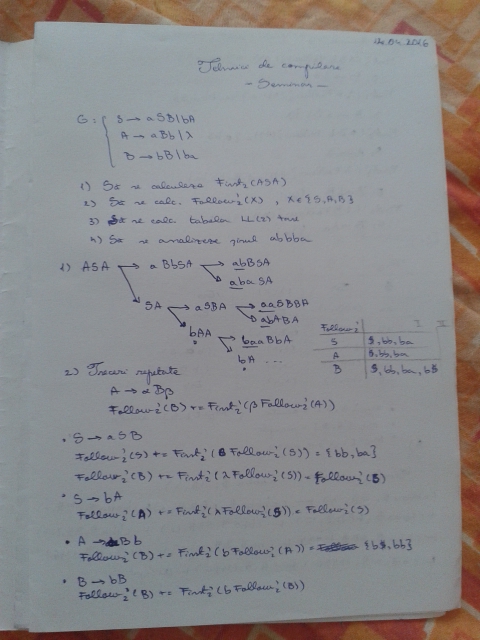 12.04.2016
Tehnici de compilare
- Seminar -
G: { S → aSB|bA
A → aBb|λ
B → bB|ba
1) Să se calculeze First₂(ASA)
2) Să se calc. Follow₂'(X), X ∈ {S,A,B}
3) Să se calc tabela LL(2) tare
4) Să se analizeze șirul abbba
1) ASA → aBbSA → abBSA
→ abaSA
→ SA → aSBA → aaSBBA
→ abABA
→ bAA → baaBbA
→ bA ...
Follow₂' | I | II
S | $, bb, ba
A | $, bb, ba
B | $, bb, ba, b$
2) Treceri repetate
A → αBβ
Follow₂'(B) += First₂'(β Follow₂'(A))
• S → aSB
Follow₂'(S) += First₂'(B Follow₂'(S)) = {bb, ba}
Follow₂'(B) += First₂'(λ Follow₂'(S)) = Follow₂'(S)
• S → bA
Follow₂'(A) += First₂'(λ Follow₂'(S)) = Follow₂'(S)
• A → aBb
Follow₂'(B) += First₂'(b Follow₂'(A)) = {b$, bb}
• B → bB
Follow₂'(B) += First₂'(b Follow₂'(B))